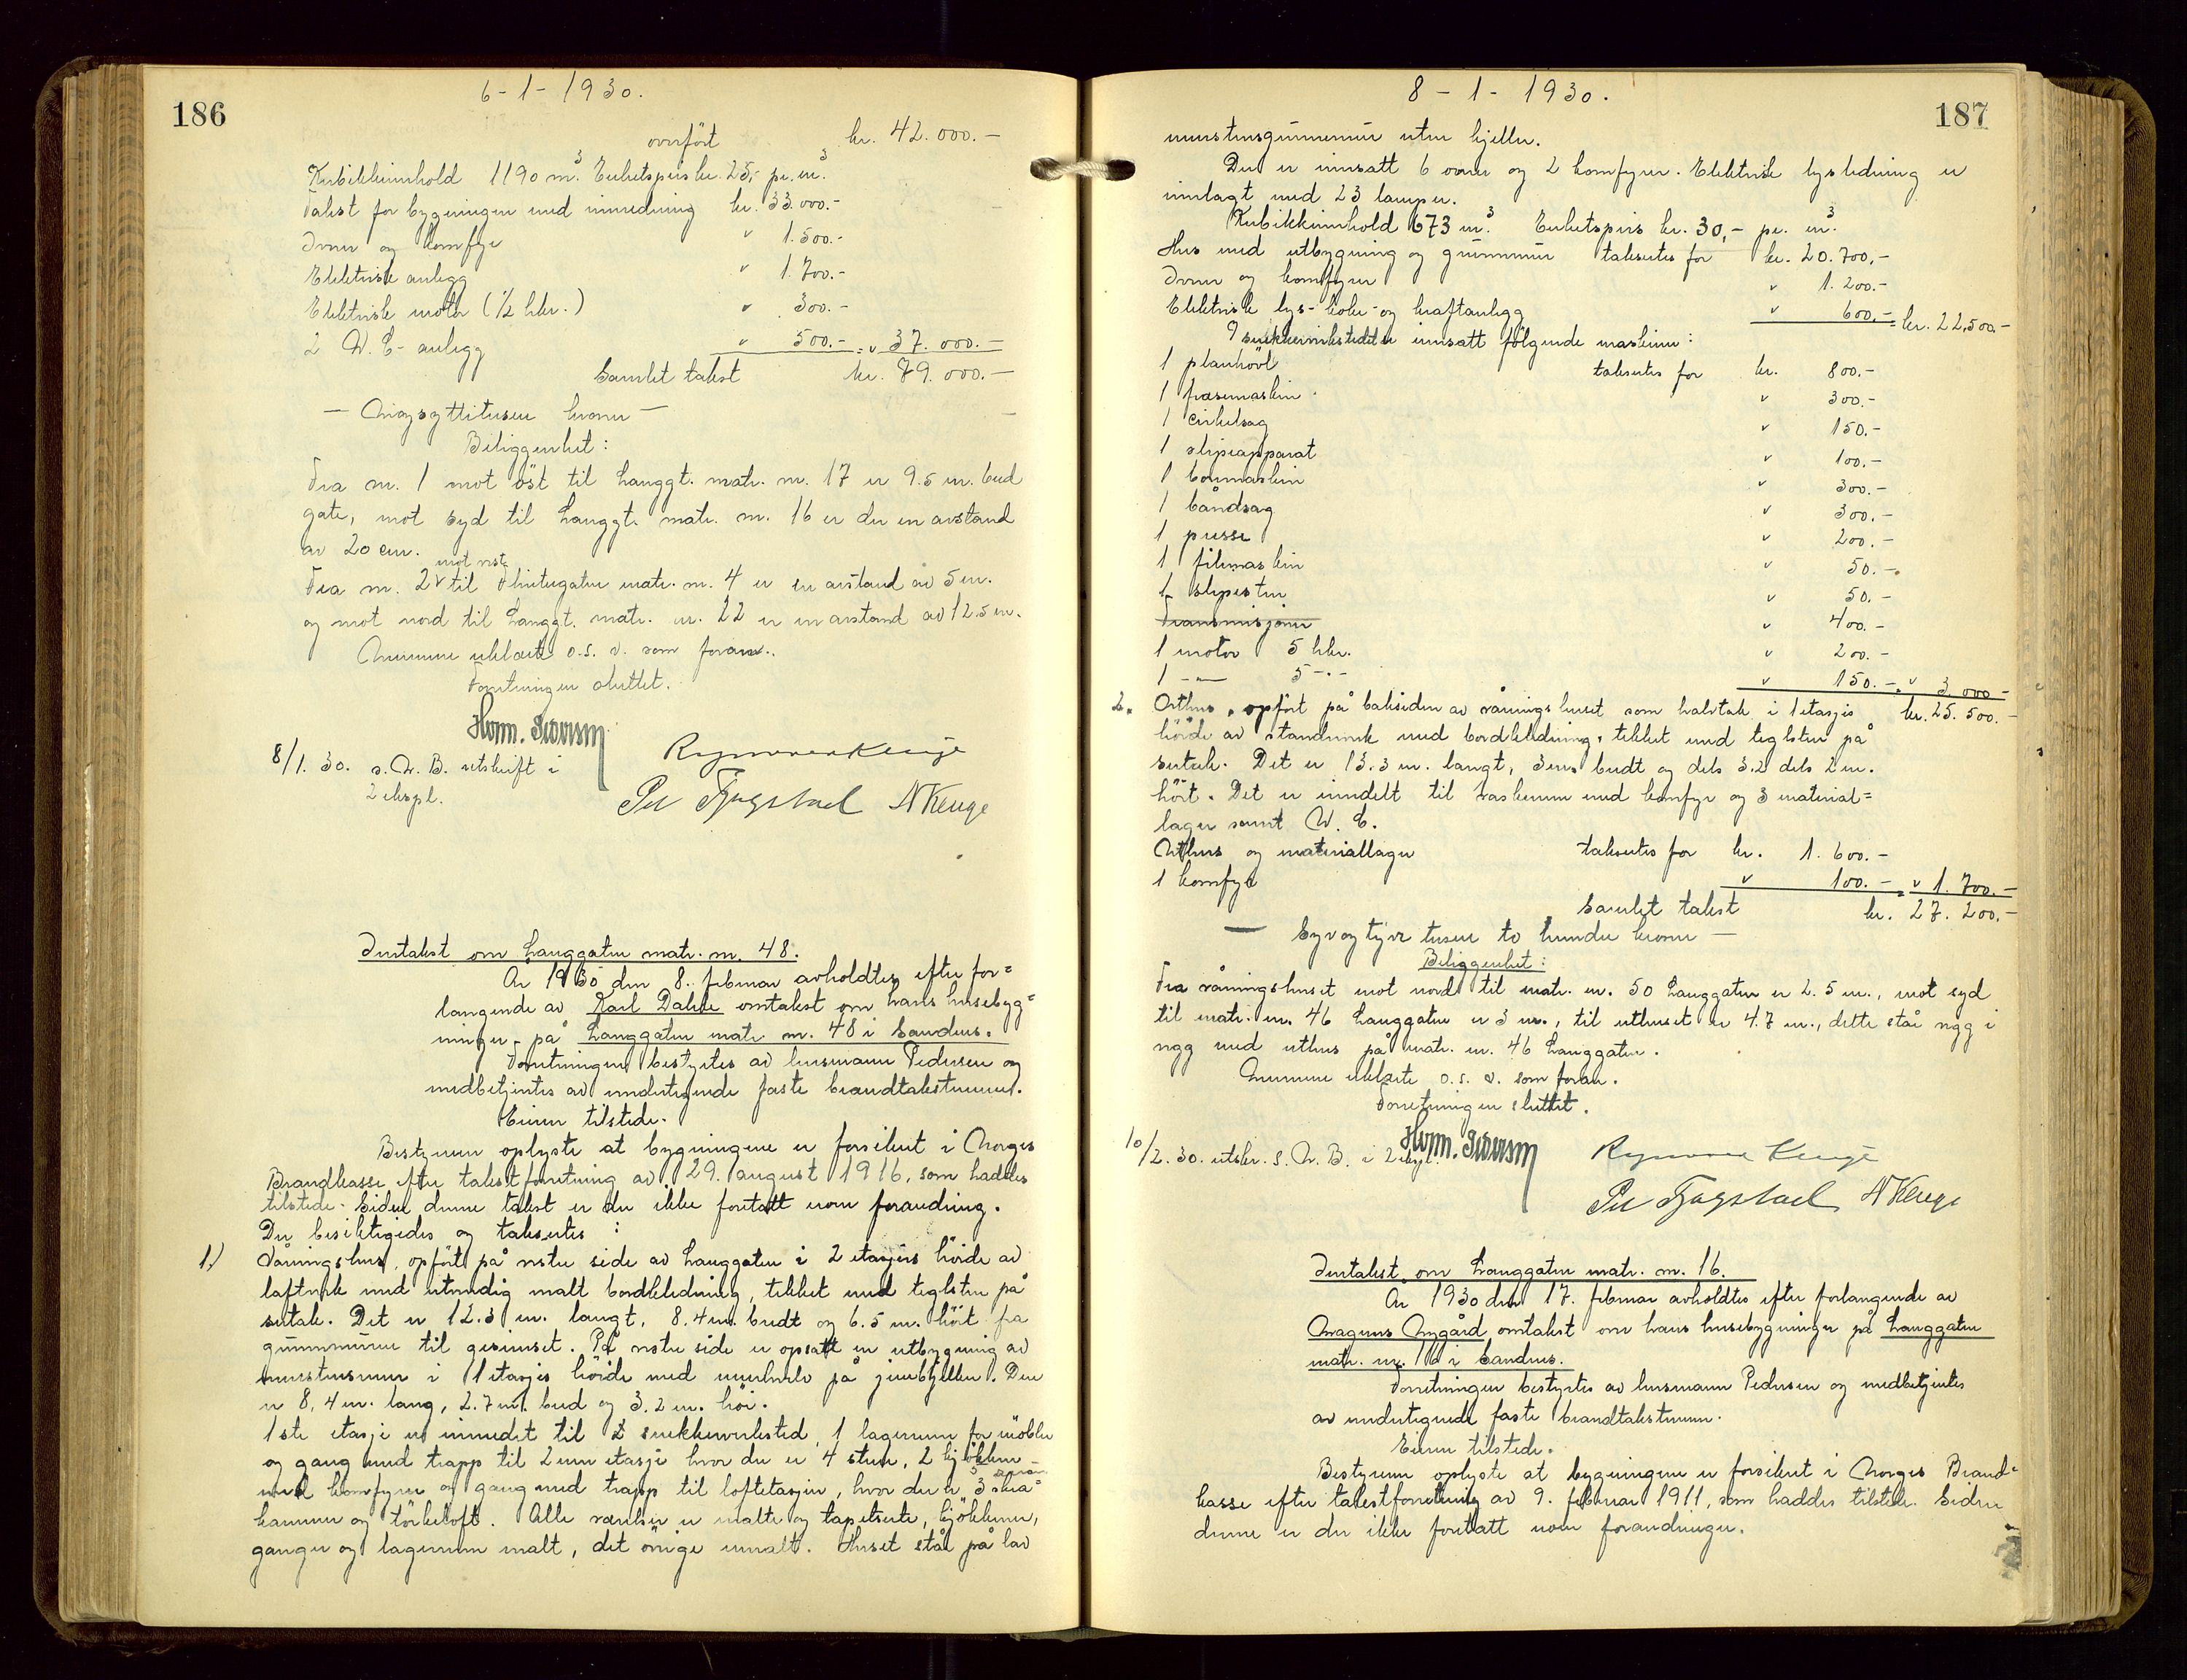 186
6-1-1930.
overført kr. 42.000.-
Kubikkinnhold 1190 m³. Enhetspris kr. 25,- pr. m³.
Takst for bygningen med innredning kr. 33.000.-
Ovner og komfyr " 1.500.-
Elektrisk anlegg " 1.700.-
Elektrisk motor (1/2 hkr.) " 300.-
2 W.C.-anlegg " 500.- = " 37.000.-
Samlet takst kr. 79.000.-
— Nigsyttitusen kroner —
Beliggenhet:
Fra nr. 1 mot öst til Langgt. matr. nr. 17 er 9.5 m. bred
gate, mot syd til Langgt. matr. nr. 16 er der en avstand
av 20 cm.
mot vest
Fra nr. 2 v til Vintergaten matr. nr. 4 er en avstand av 5 m.
og mot nord til Langgt. matr. nr. 22 er en avstand av 12.5 m.
Mennene erklærte o.s.v. som foran.
Forretningen sluttet.
8/1. 30. s. N. B. utskrift i
2 ekspl.
Omtakst om Langgaten matr. nr. 48.
År 1930 den 8. februar avholdtes efter for=
langende av Karl Dahle omtakst om hans husebyg=
ninger på Langgaten matr. nr. 48 i Sandnes.
Forretningen bestyrtes av lensmann Pedersen og
medbetjentes av undertegnede faste brandtakstmenn.
Eieren tilstede.
Bestyreren oplyste at bygningene er forsikret i Norges
Brandkasse efter takstforretning av 29. august 1916, som haddes
tilstede. Siden denne takst er der ikke foretatt noen forandring.
Der besiktigedes og taksertes :
1) Våningshus, opført på vestre side av Langgaten i 2 etasjers höide av
laftverk med utvendig malt bordkledning, tekket med teglsten på
sutak. Det er 12.3 m. langt, 8.4 m. bredt og 6.5 m. höit fra
grunnmuren til gesimset. På vestre side er opsatt en utbygning av
murstensmur i 1 etasjes höide med murdekke på jernbjelker. Den
er 8,4 m. lang, 2.7 m. bred og 3.2 m. höi.
1ste etasje er innredet til 2 snekkerverksted, 1 lagerrum for möbler
og gang med trapp til 2nen etasje hvor der er 4 stuer, 2 kjökken
med komfyrer og gang med trapp til loftetasjen, hvor der er 3 skrå=
kammer og törkeloft. Alle værelser er malte og tapetserte, kjökkener,
ganger og lagerrum malt, det övrige umalt. Huset står på lav
187
8-1-1930.
murstensgrunnmur uten kjeller.
Der er innsatt 6 ovner og 2 komfyrer. Elektrisk lysledning er
innlagt med 23 lamper.
Kubikkinnhold 673 m³. Enhetspris kr. 30,- pr. m³.
Hus med utbygning og grunnmur taksertes for kr. 20.700,-
Ovner og komfyrer " 1.200.-
Elektrisk lys- koke- og kraftanlegg " 600,- = kr. 22,500.-
I snekkerverkstedet er innsatt følgende maskiner:
1 planhövl taksertes for kr. 800.-
1 fræsemaskin " 300.-
1 cirkelsag " 150.-
1 slipeapparat " 100.-
1 boremaskin " 300.-
1 båndsag " 300.-
1 presse " 200.-
1 filemaskin " 50.-
1 slipesten " 50.-
Transmisjoner " 400.-
1 motor 5 hkr. " 200.-
1 -"- 5 -.- " 150.- = " 3.000-
kr. 25.500.-
2. Uthus, opført på baksiden av våningshuset som halvtak i 1 etasjes
höide av standverk med bordkledning, tekket med teglsten på
sutak. Det er 13.3 m. langt, 3 m. bredt og dels 3.2 dels 2 m.
höit. Det er inndelt til vaskerum med komfyr og 3 material=
lager samt W. C.
Uthus og materiallager taksertes for kr. 1.600.-
1 komfyr " 100.- = " 1.700.-
Samlet takst kr. 27.200.-
— Syvogtyve tusen to hundre kroner —
Beliggenhet:
Fra våningshuset mot nord til matr. nr. 50 Langgaten er 2.5 m., mot syd
til matr. nr. 46 Langgaten er 3 m., til uthuset er 4.7 m., dette står rygg i
rygg med uthus på matr. nr. 46 Langgaten.
Mennene erklærte o.s.v. som foran.
Forretningen sluttet.
10/2. 30. utskr. s. N. B. i 2 ekspl.
Omtakst om Langgaten matr. nr. 16.
År 1930 den 17. februar avholdtes efter forlangende av
Magnus Nygård omtakst om hans husebygninger på Langgaten
matr. nr. 16 i Sandnes.
Forretningen bestyrtes av lensmann Pedersen og medbetjentes
av undertegnede faste brandtakstmenn.
Eieren tilstede.
Bestyreren oplyste at bygningene er forsikret i Norges Brand=
kasse efter takstforretning av 9. februar 1911, som haddes tilstede. Siden
denne er der ikke foretatt noen forandringer.